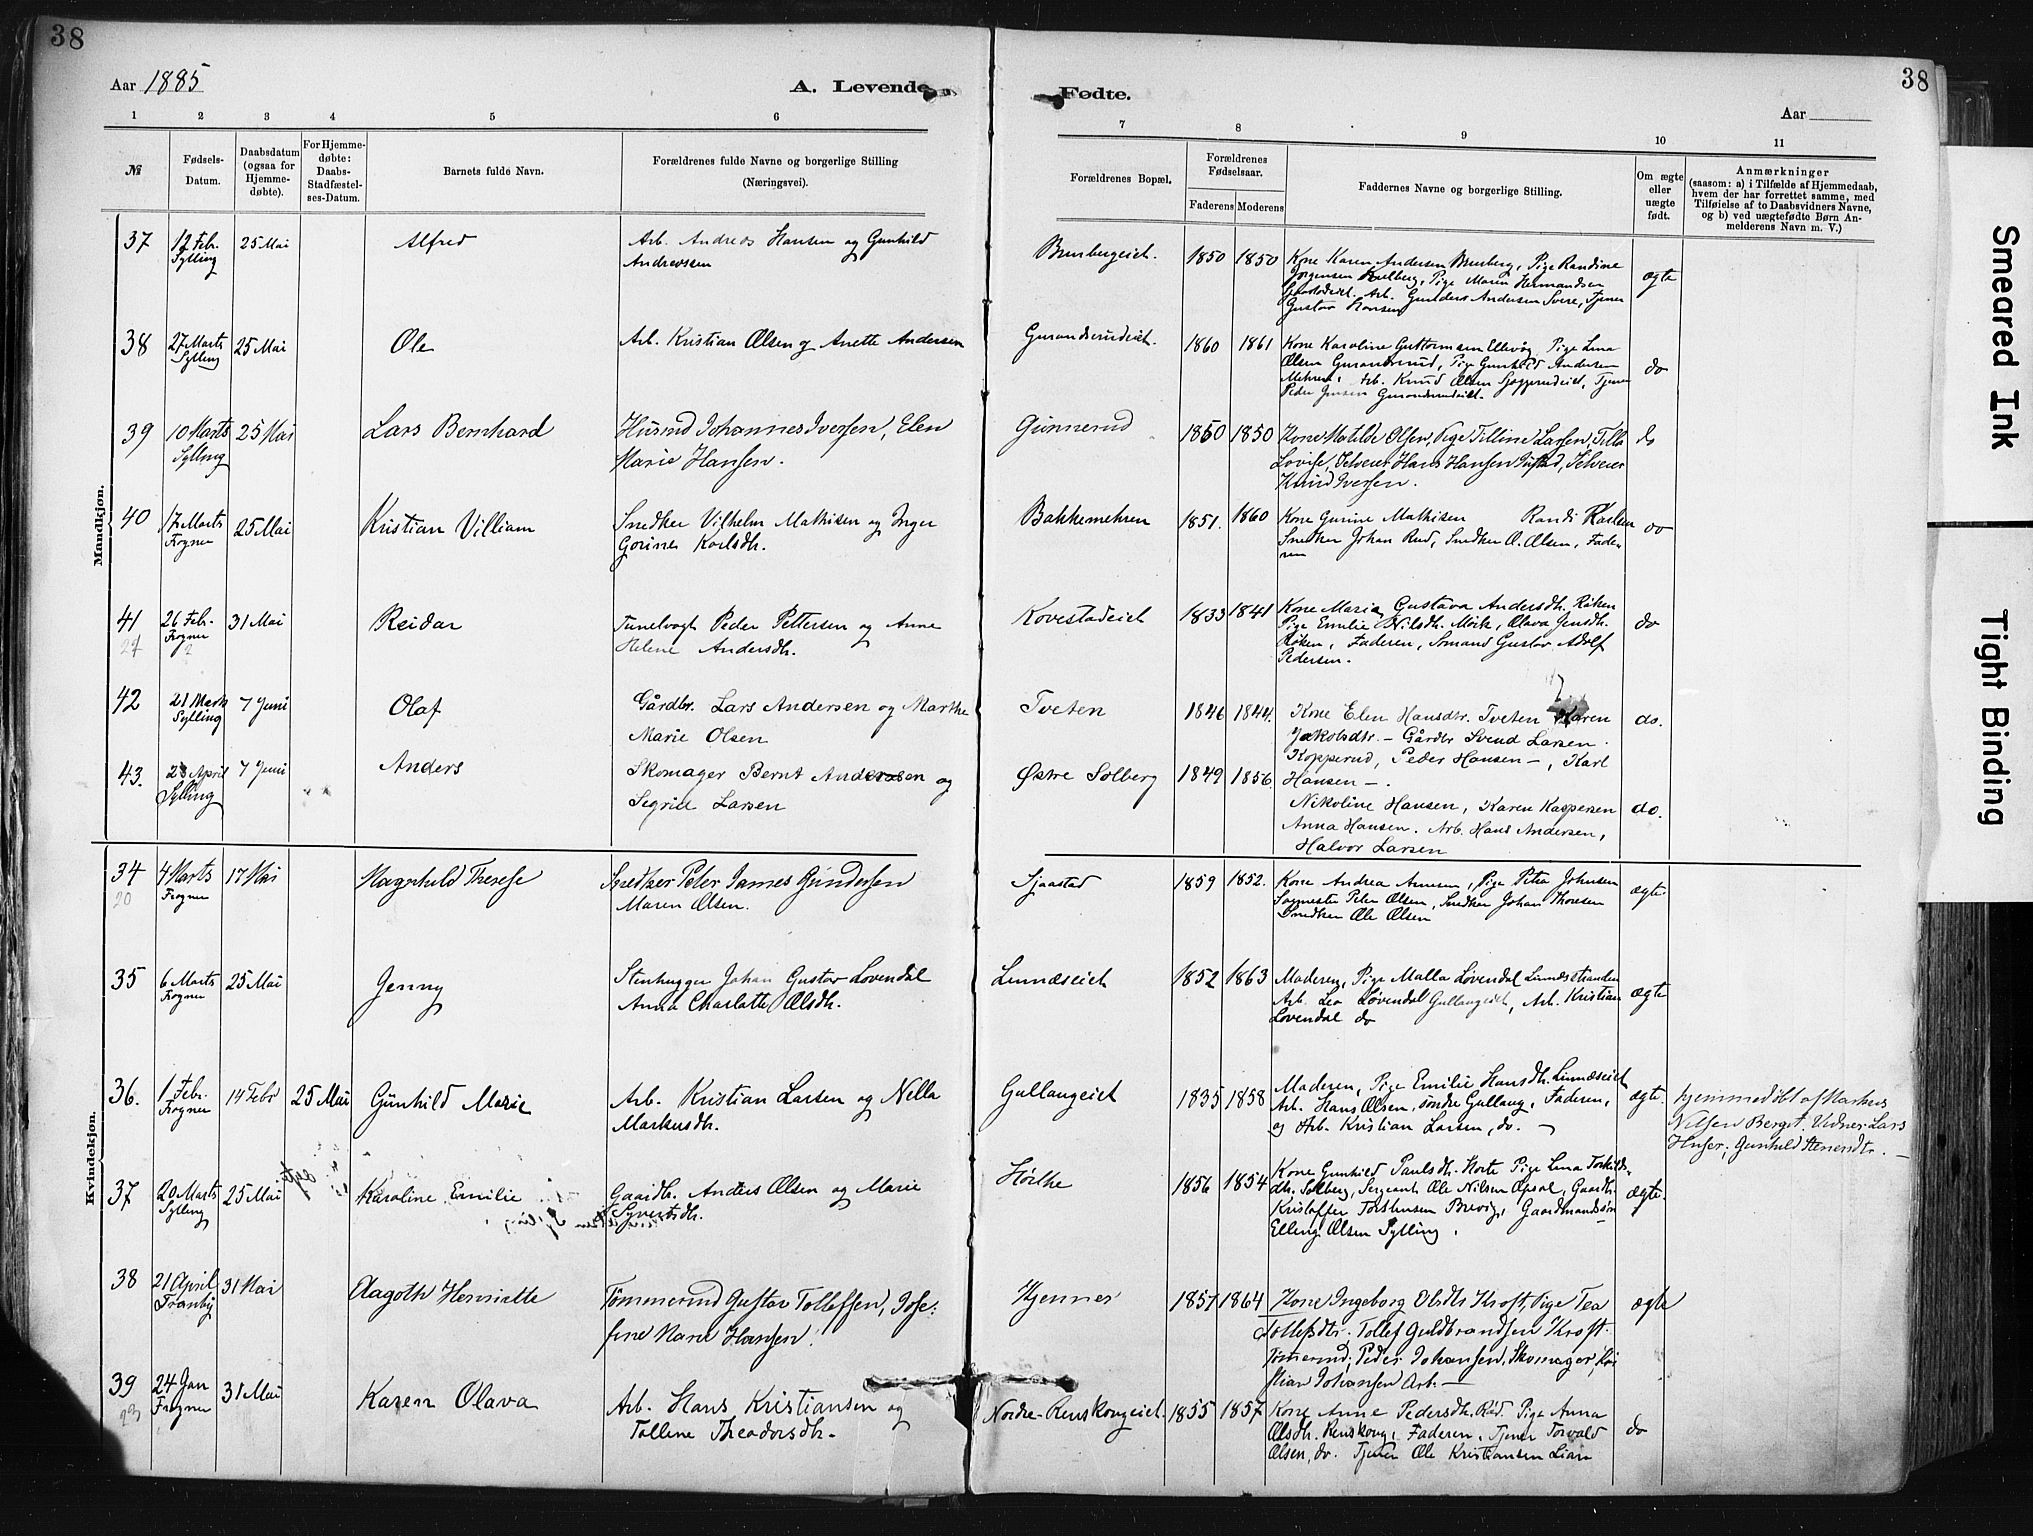 38
38
Aar 1885
A. Levende
Fødte.
Aar
1 2 3 4 5 6 7 8 9 10 11
№
Fødsels-
Datum.
Daabsdatum
(ogsaa for
Hjemme-
døbte).
For Hjemme-
døbte:
Daabs-
Stadfæstel-
ses-Datum.
Barnets fulde Navn.
Forældrenes fulde Navne og borgerlige Stilling
(Næringsvei).
Forældrenes Bopæl.
Forældrenes
Fødselsaar.
Faderens Moderens
Faddernes Navne og borgerlige Stilling.
Om ægte
eller
uægte
født.
Anmærkninger
(saasom: a) i Tilfælde af Hjemmedaab,
hvem der har forrettet samme, med
Tilføielse af to Daabsvidners Navne,
og b) ved uægtefødte Børn An-
melderens Navn m. V.)
Mandkjøn.
37 12 Febr. 25 Mai Alfred Arb. Andreas Hansen og Gunhild 1850 1850 Kone Karen Andersen Bursberg, Pige Randine
Sylling Andreassen Jørgensen Pige Maren Hermandsen ægte
Arb. Gunders Andersen Svere, Tjener
Gustav Hansen
38 27 Marts 25 Mai Ole Arb. Kristian Olsen og Anette Andersen 1860 1861 Kone Karoline Guttormsen Pige Lina
Sylling Olsen Pige Gunhild Andersen do
Mehren, Arb. Knud Olsen Tjener
Peder Jensen
39 10 Marts 25 Mai Lars Bernhard Husmd Johannes Iversen, Elen Gunnerud 1850 1850 Kone Matilde Olsen, Pige Tilline Larsen, do
Sylling Marie Hansen. Lovise, Selveier Hans Hansen Selveier
Knud Iversen.
40 17 Marts 25 Mai Kristian Villiam Snedker Vilhelm Mathisen og Inger Bakkemehren 1851. 1860 Kone Gurine Mathisen Randi Karlsen do
Frogner Gorine Karlsdh. Snedker Johan Rud, Snedker O. Olsen, Fade-
ren
41 26 Febr. 31 Mai Reidar Tunelvogt Peder Pettersen og Anne Kovestadeiet 1833 1841 Kone Maria Gustava Andersdh. Røken
Frogner Helene Andersdh. Pige Emilie Nilsdh. Olava Jensdh. do
Røken, Faderen, Sømand Gustav Adolf
Pedersen.
42 21 Marts 7 Juni Olaf Gårdbr. Lars Andersen og Marthe Tveten 1846 1844. Kone Elen Hansdtr. Tveten Karen do.
Sylling Marie Olsen Jakobsdtr. – Gårdbr Svend Larsen
Kopperud, Peder Hansen –, Karl
Hansen –.
43. 23 April 7 Juni Anders Skomager Bernt Andersen og Østre Solberg 1849 1856.
Sylling Segrid Larsen Nikoline Hansen, Karen Kaspersen do.
Anna Hansen. Arb. Hans Andersen,
Halvor Larsen
Kvindekjøn.
34 4 Marts 17 Mai Magnhild Therese Snedker Peter James Gundersen Sjaastad 1859 1852. Kone Andrea Arnesen, Pige Petra Johnsen ægte.
20 Frogner Maren Olsen. Peter Olsen, Snedker Johan Thoresen
Snedker Ole Olsen
35 6 Marts 25 Mai Jenny Stenhugger Johan Gustav Lovendal Linnæseiet 1852 1863 Moderen, Pige Malla Løvendal Linnæsstranden
Frogner Anna Charlotte Olsdh. Arb. Leo Løvendal Gullaugeiet, Arb. Kristian ægte
Lovendal do
36. 1 Febr. 14 Febr 25 Mai Gunhild Marie Arb. Kristian Larsen og Nella Gullaugeiet 1835 1858 Moderen, Pige Emilie Hansdh. Linnæseiet ægte.
Frogner Markusdh. Arb. Hans Olsen, søndre Gullaug, Faderen,
og Arb. Kristian Larsen, do. –
hjemmedøbt af Markus
Nilsen Berget. Vidner: Lars
Huser, Gunhild
37 20 Marts 25 Mai Karoline Emilie Gaardb. Anders Olsen og Marie Hørthe 1856 1854 Kone Gunhild Paulsdh. Horte Pige Lina Torkilds-
Sylling Syvertsdh. dh. Solberg, Sergeant Ole Nilsen Opsal, Gaardb. ægte.
Kristoffer Torstensen Brevig, Gaardmandssøn
Elling Olsen Sylling.
38 21 April 31 Mai Aagoth Henriette Tømmermd Gustav Tollefsen, Jose- Kjenner 1857 1864 Kone Ingeborg Olsdtr Kroft, Pige Tea ægte
Tranby fine Marie Hansen. Tollefsdtr, Tollef Guldbrandsen Kroft
Tømmermd; Peder Johansen, Skomager, Kri
stian Johansen Arb. –
39 24 Jan 31 Mai Karen Olava Arb. Hans Kristiansen og Nordre-Renskougeiet 1855 1857 Kone Anne Pedersdh. Rød. Pige Anna
23 Frogner Tolline Theodorsdh. Olsdh. Renskoug, Faderen, Tjener Torvald do
Olsen, do. Tjener Ole Kristiansen Lian
Smeared Ink
Tight Binding